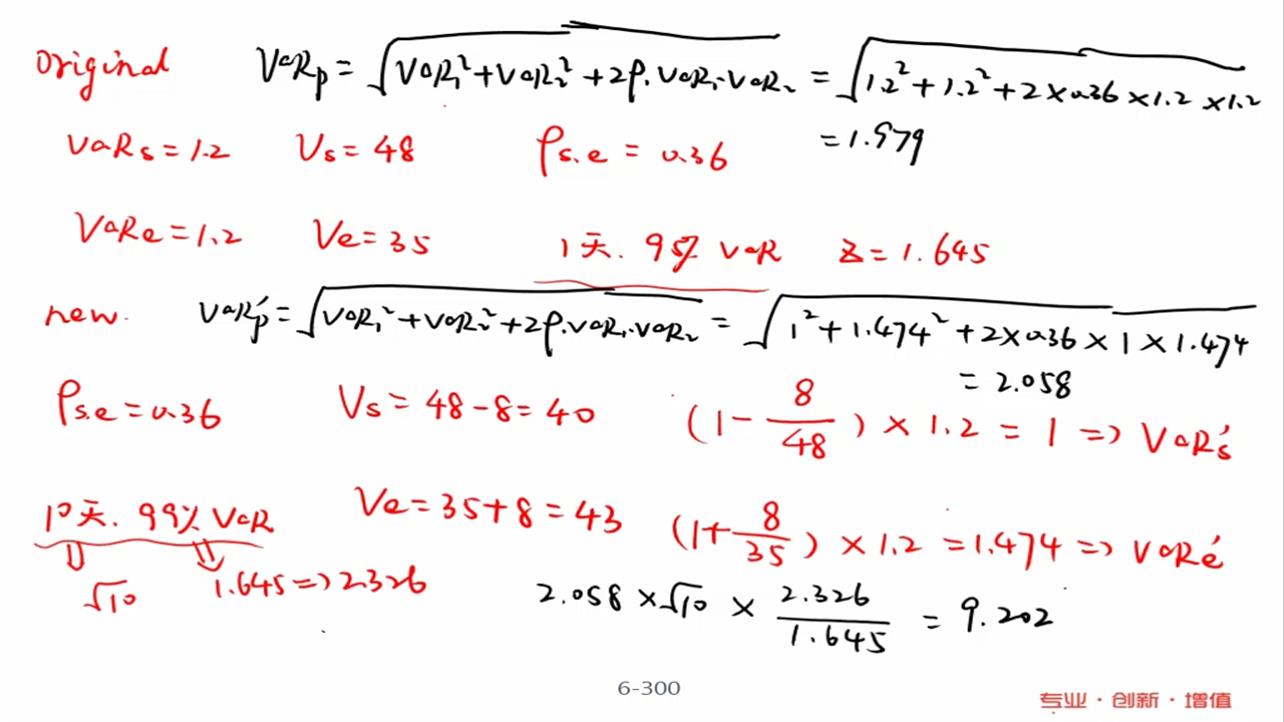 original VaRp = √(VaR₁² + VaR₂² + 2ρ·VaR₁·VaR₂) = √(1.2² + 1.2² + 2×0.36×1.2×1.2)
= 1.979
VaRs = 1.2 Vs = 48 ρs.e = 0.36
VaRe = 1.2 Ve = 35 1天. 95% VaR z = 1.645
new. VaRp′ = √(VaR₁² + VaR₂² + 2ρ·VaR₁·VaR₂) = √(1² + 1.474² + 2×0.36×1×1.474)
= 2.058
ρs.e = 0.36 Vs = 48-8 = 40 (1 - 8/48) × 1.2 = 1 => VaRs′
10天. 99% VaR Ve = 35+8 = 43 (1 + 8/35) × 1.2 = 1.474 => VaRe′
√10 1.645 => 2.326 2.058 × √10 × 2.326/1.645 = 9.202
6-300
专业·创新·增值